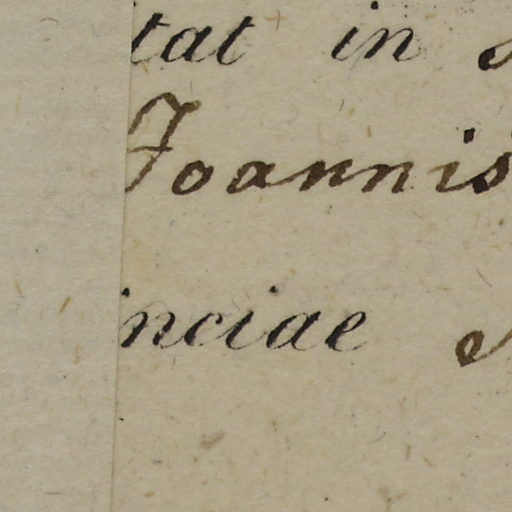 tat in
Joannis
inciae